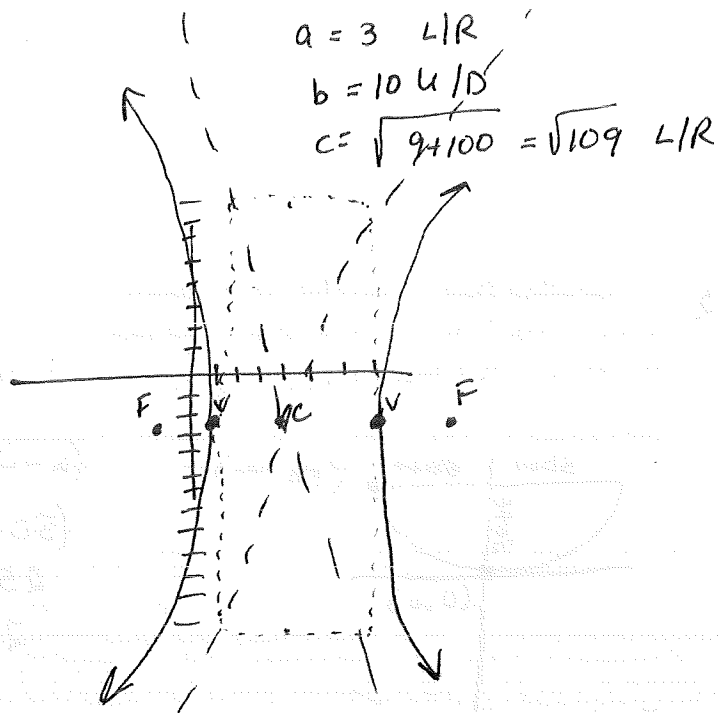 a = 3 L/R
b = 10 U/D
c = √9+100 = √109 L/R
F V C V F